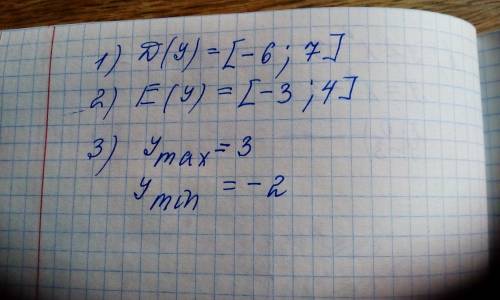 1) D(y) = [-6 ; 7]
2) E(y) = [-3 ; 4]
3) y max = 3
y min = -2